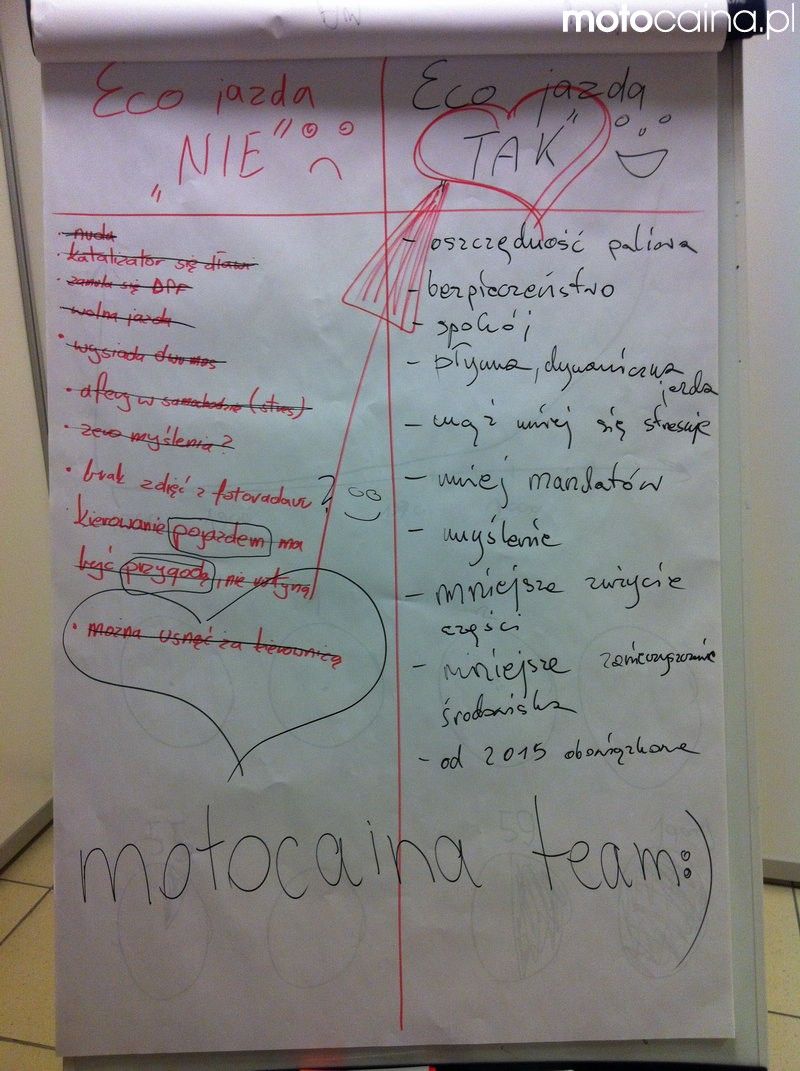 motocaina.pl
Eco jazda
„NIE"
· nuda
· katalizator się dławi
· zamula się DPF
· wolna jazda
· wysiada dwumas
· afery w samochodzie (stres)
· zero myślenia?
· brak zdjęć z fotoradaru ?
kierowanie pojazdem ma
być przygodą, nie rutyną
· można usnąć za kierownicą
Eco jazda
„TAK"
- oszczędność paliwa
- bezpieczeństwo
- spokój
- płynna, dynamiczna
jazda
- mąż mniej się stresuje
- mniej mandatów
- myślenie
- mniejsze zużycie
części
- mniejsze zanieczyszczenie
środowiska
- od 2015 obowiązkowe
motocaina team:)